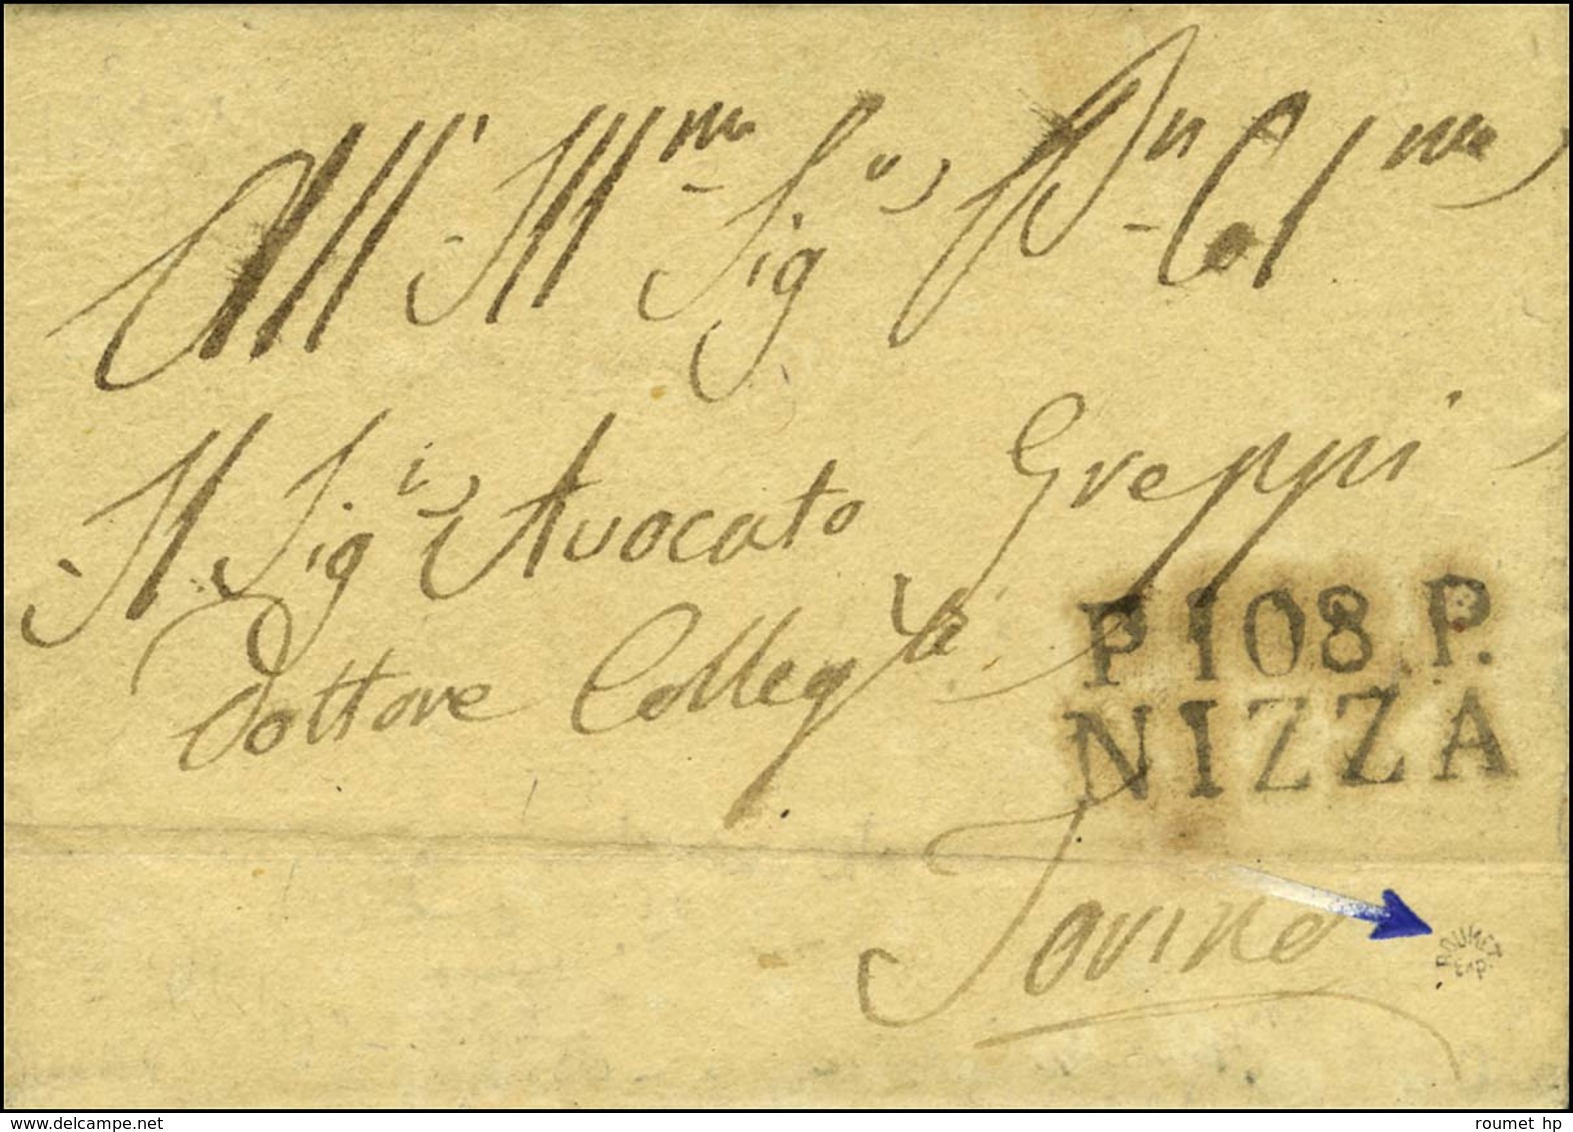 All' Ill.mo Sig.r P.n Col.mo
Il Sig.r Avocato Greppi
Dottore Colleg.to
P 108 P.
NIZZA
Torino
ROUMET
Exp.
roumet hp